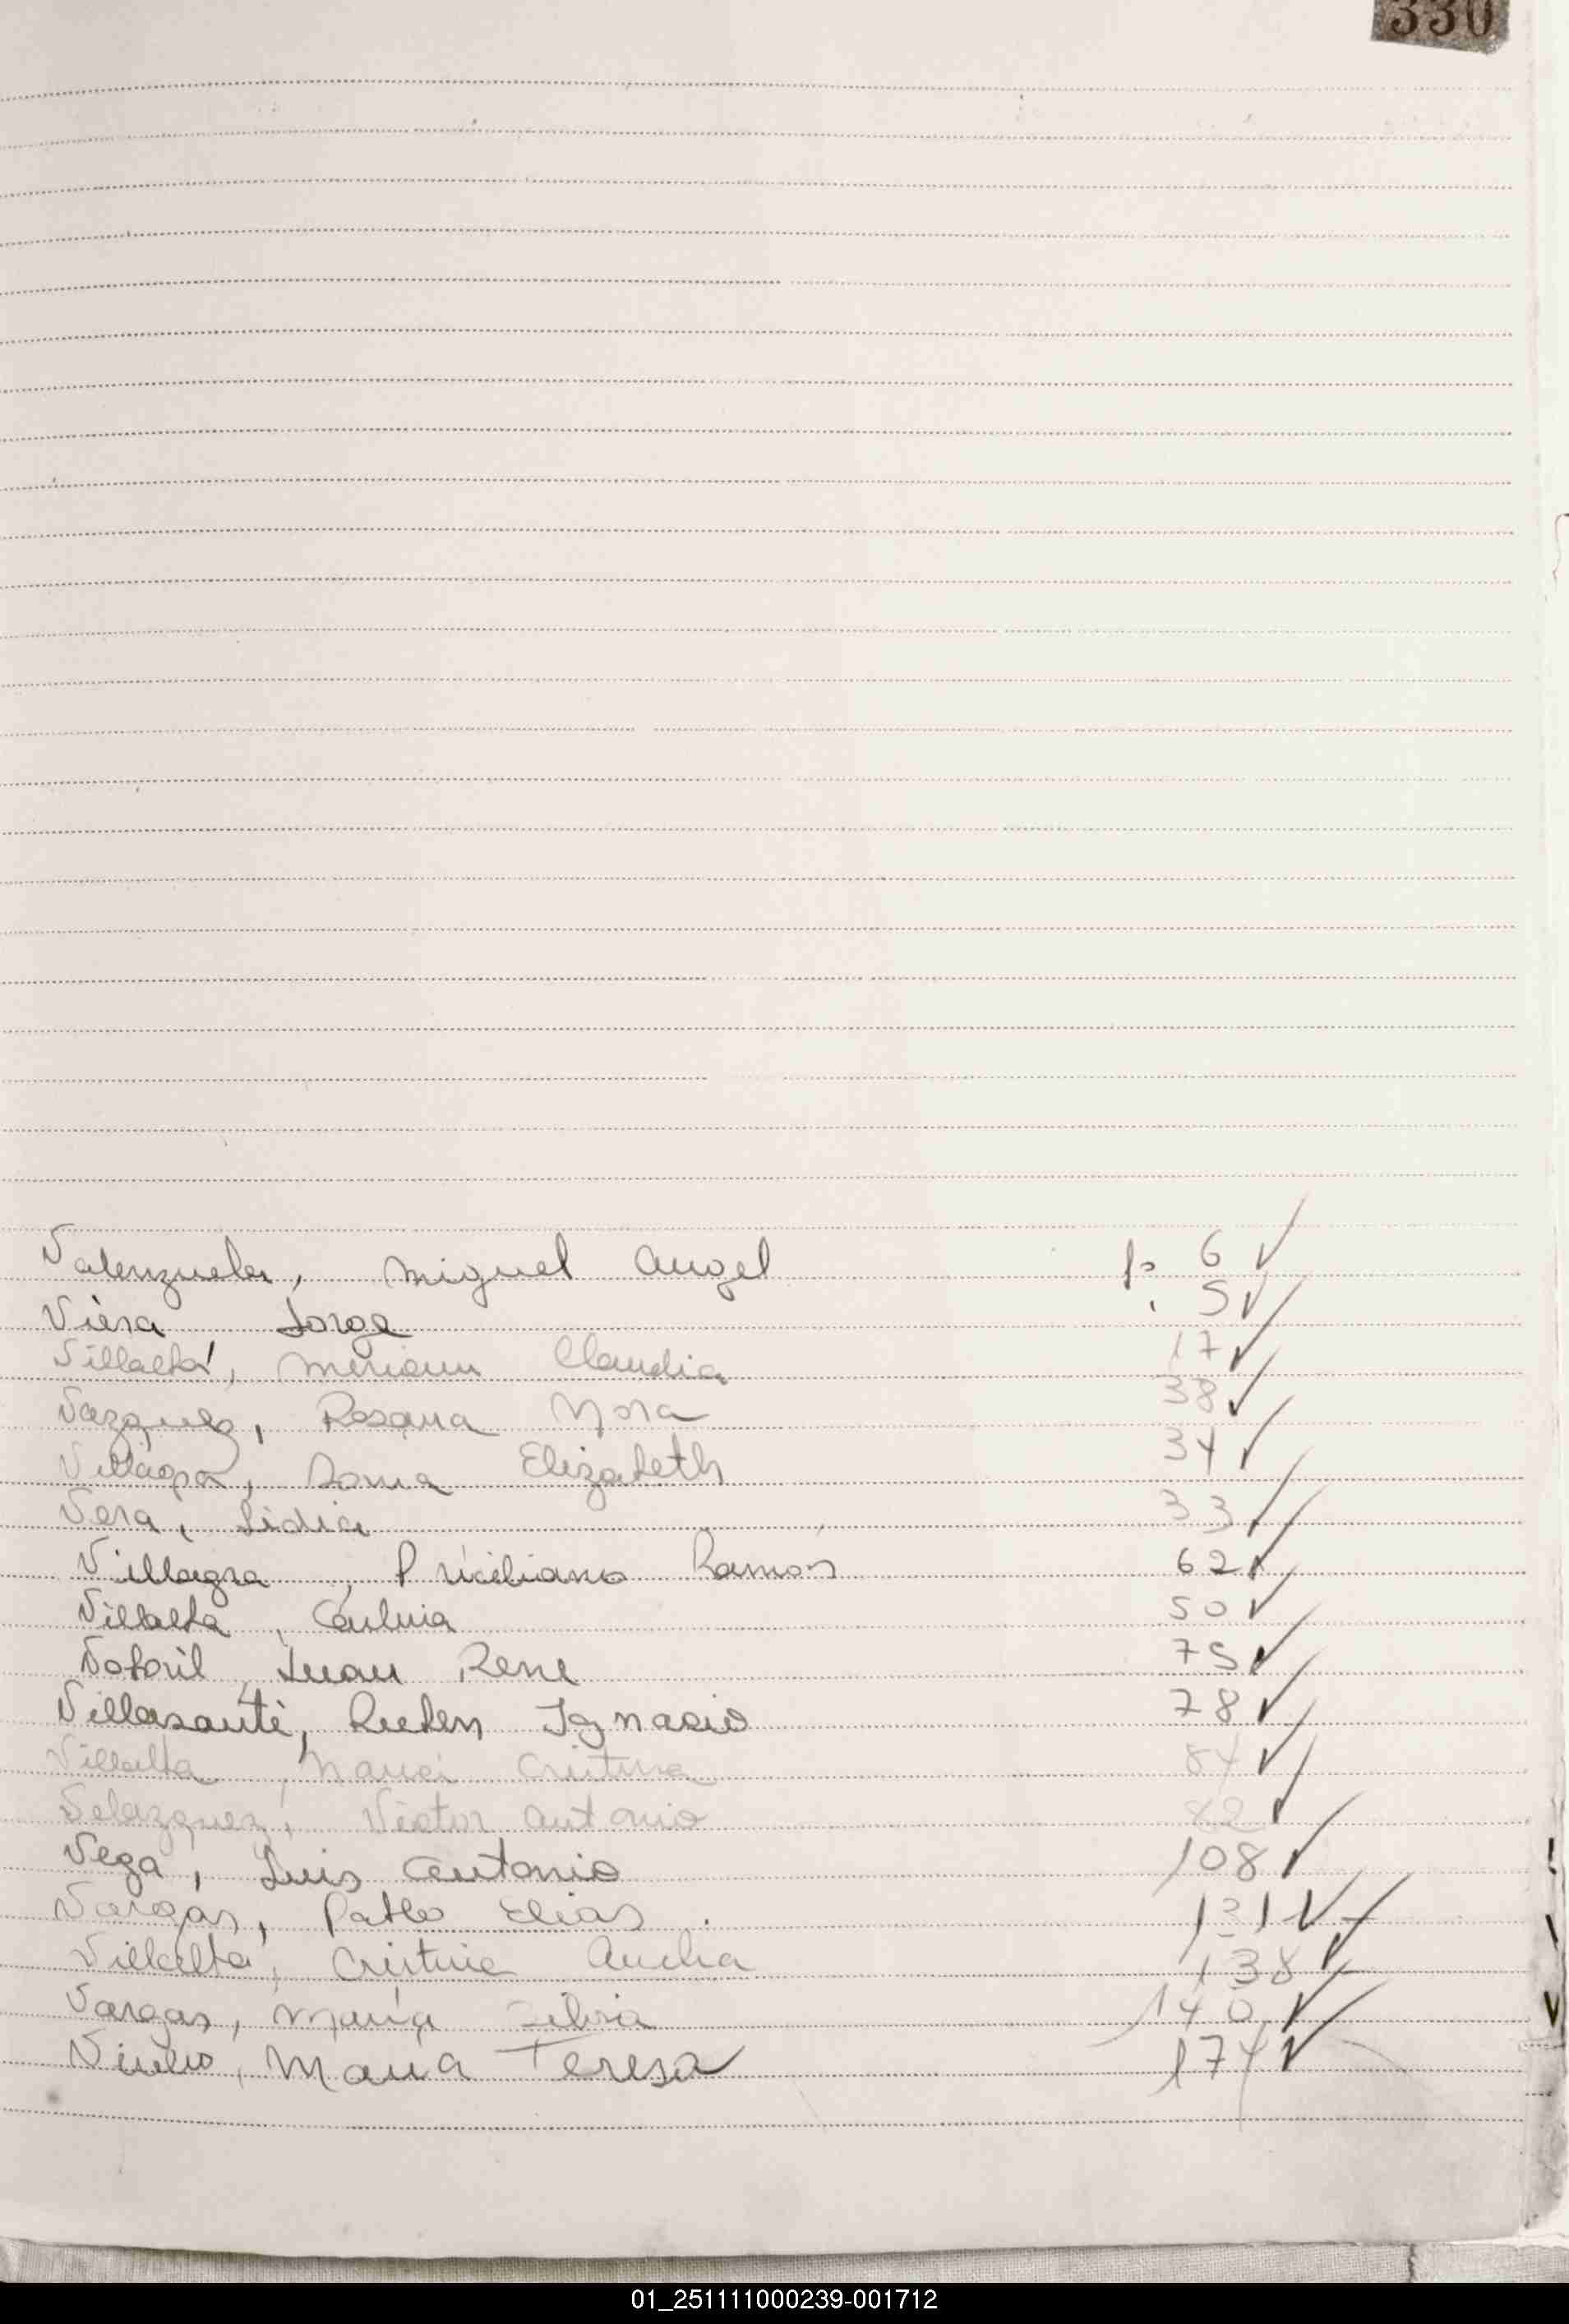 330
Valenzuela, Miguel Angel fo 6 ✓
Viera Jorge 5 ✓
Villalta, Miriam Claudia 17 ✓
Vazquez, Rosana Nora 38 ✓
Villagra, Sonia Elizabeth 34 ✓
Vera, Lidia 33 ✓
Villagra, Priciliano Ramon 62 ✓
Villalta, 50 ✓
Juan Rene 75 ✓
Villasanti, Ruben Ignacio 78 ✓
Villalta, Maria Cristina 84 ✓
Velazquez, Victor Antonio 82 ✓
Vega, Luis Antonio 108 ✓
Vargas, Pablo Elias. 131 ✓
Villalba, Cristina 138 ✓
Vargas, Maria Silvia 140 ✓
Maria Teresa 174 ✓
01_251111000239-001712